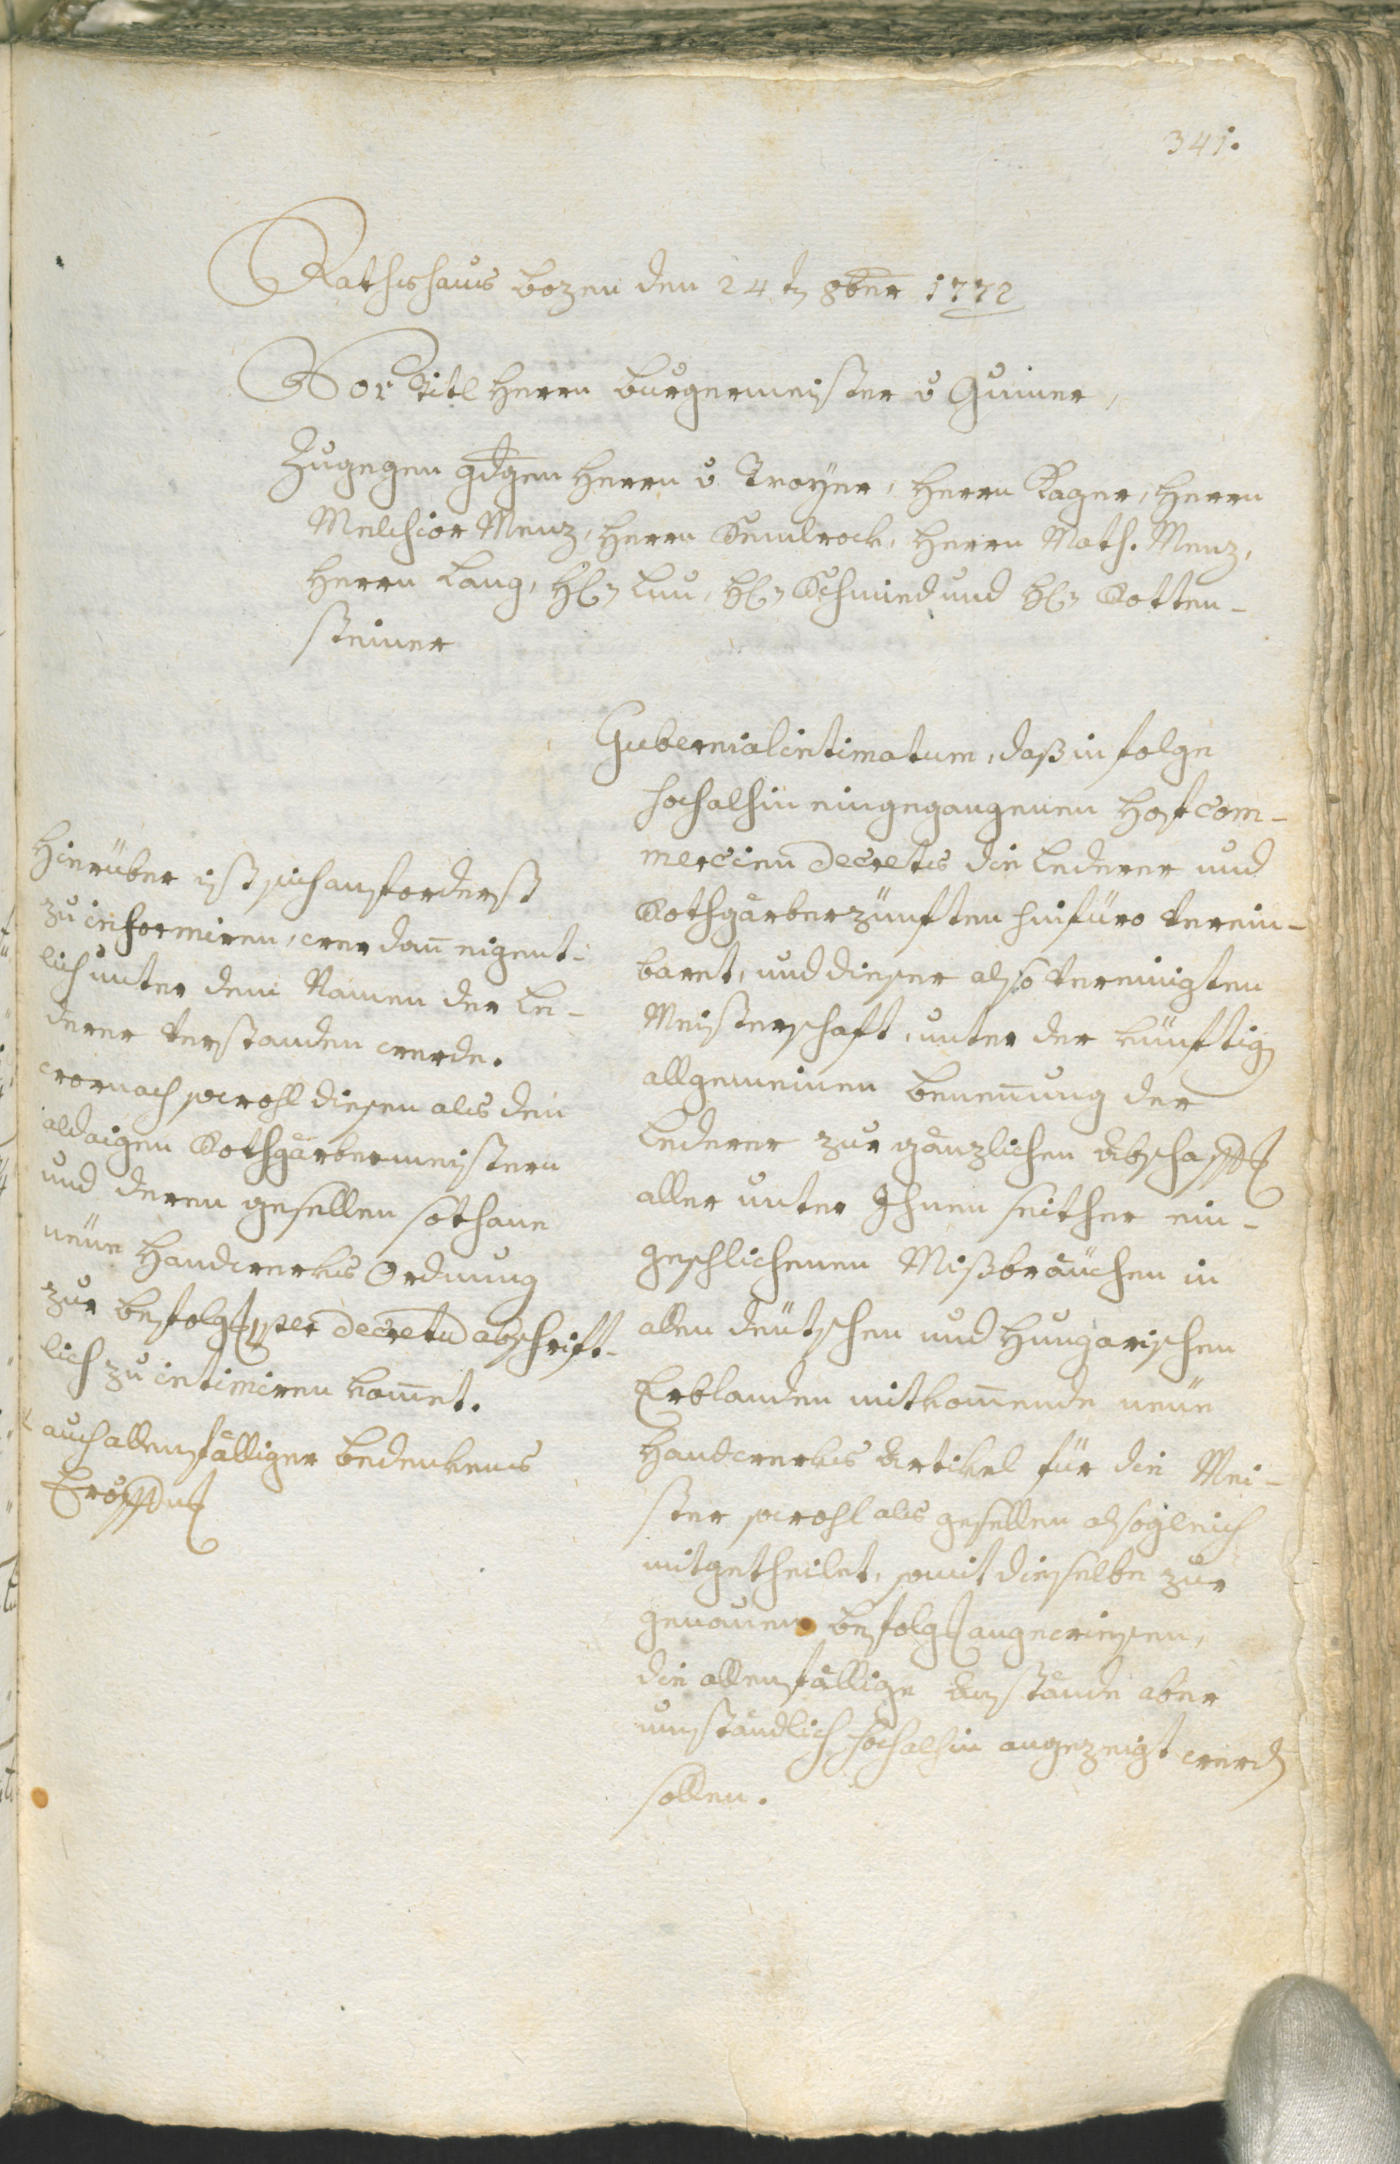 341.
Rathshaus Bozen den 24t 8ber 1772
Vor Titl Herrn Burgermeister v Gumer,
Zugegen gdgen Herrn v Troyer, Herrn Kager, Herrn
Melchior Menz, Herrn Kemlrock, Herrn Math. Menz,
Herrn Lang, H: , H: Schmied und H: Rotten-
steiner
Gubernialintimatum, daß in folge
hochalhin eingegangenen Hof com-
mercien decrets die Lederer und
Rothgärberzünften hinfüro verein-
baret, und dieser also vereinigten
Meisterschaft, unter der künftig
allgemeinen Benennung der
Lederer zur gänzlichen Abschaff
aller unter Ihnen seither ein-
geschlichenen Mißbräuchen in
allen deütschen und Hungarischen
Erblanden mitkommende neüe
Handwerks Artikel für die Mei-
ster sowohl als gesellen alsogleich
mitgetheilet, somit dieselbe zur
genauen Befolg angewiesen,
die allenfällige Anstände aber
umständlich hochalhin angezeigt werd
sollen.
Hierüber ist sich anforderst
zu informiren, wer dan eigent-
lich unter dem Namen der Le-
derer verstanden werde.
wornach sowohl diesen als den
aldaigen Rothgärbermeistern
und deren gesellen sothane
neüe Handwerks Ordnung
zur Befolg per decretu abschrift-
lich zu intimiren kommet.
auch allenfälliger Bedenkens
Eröffn